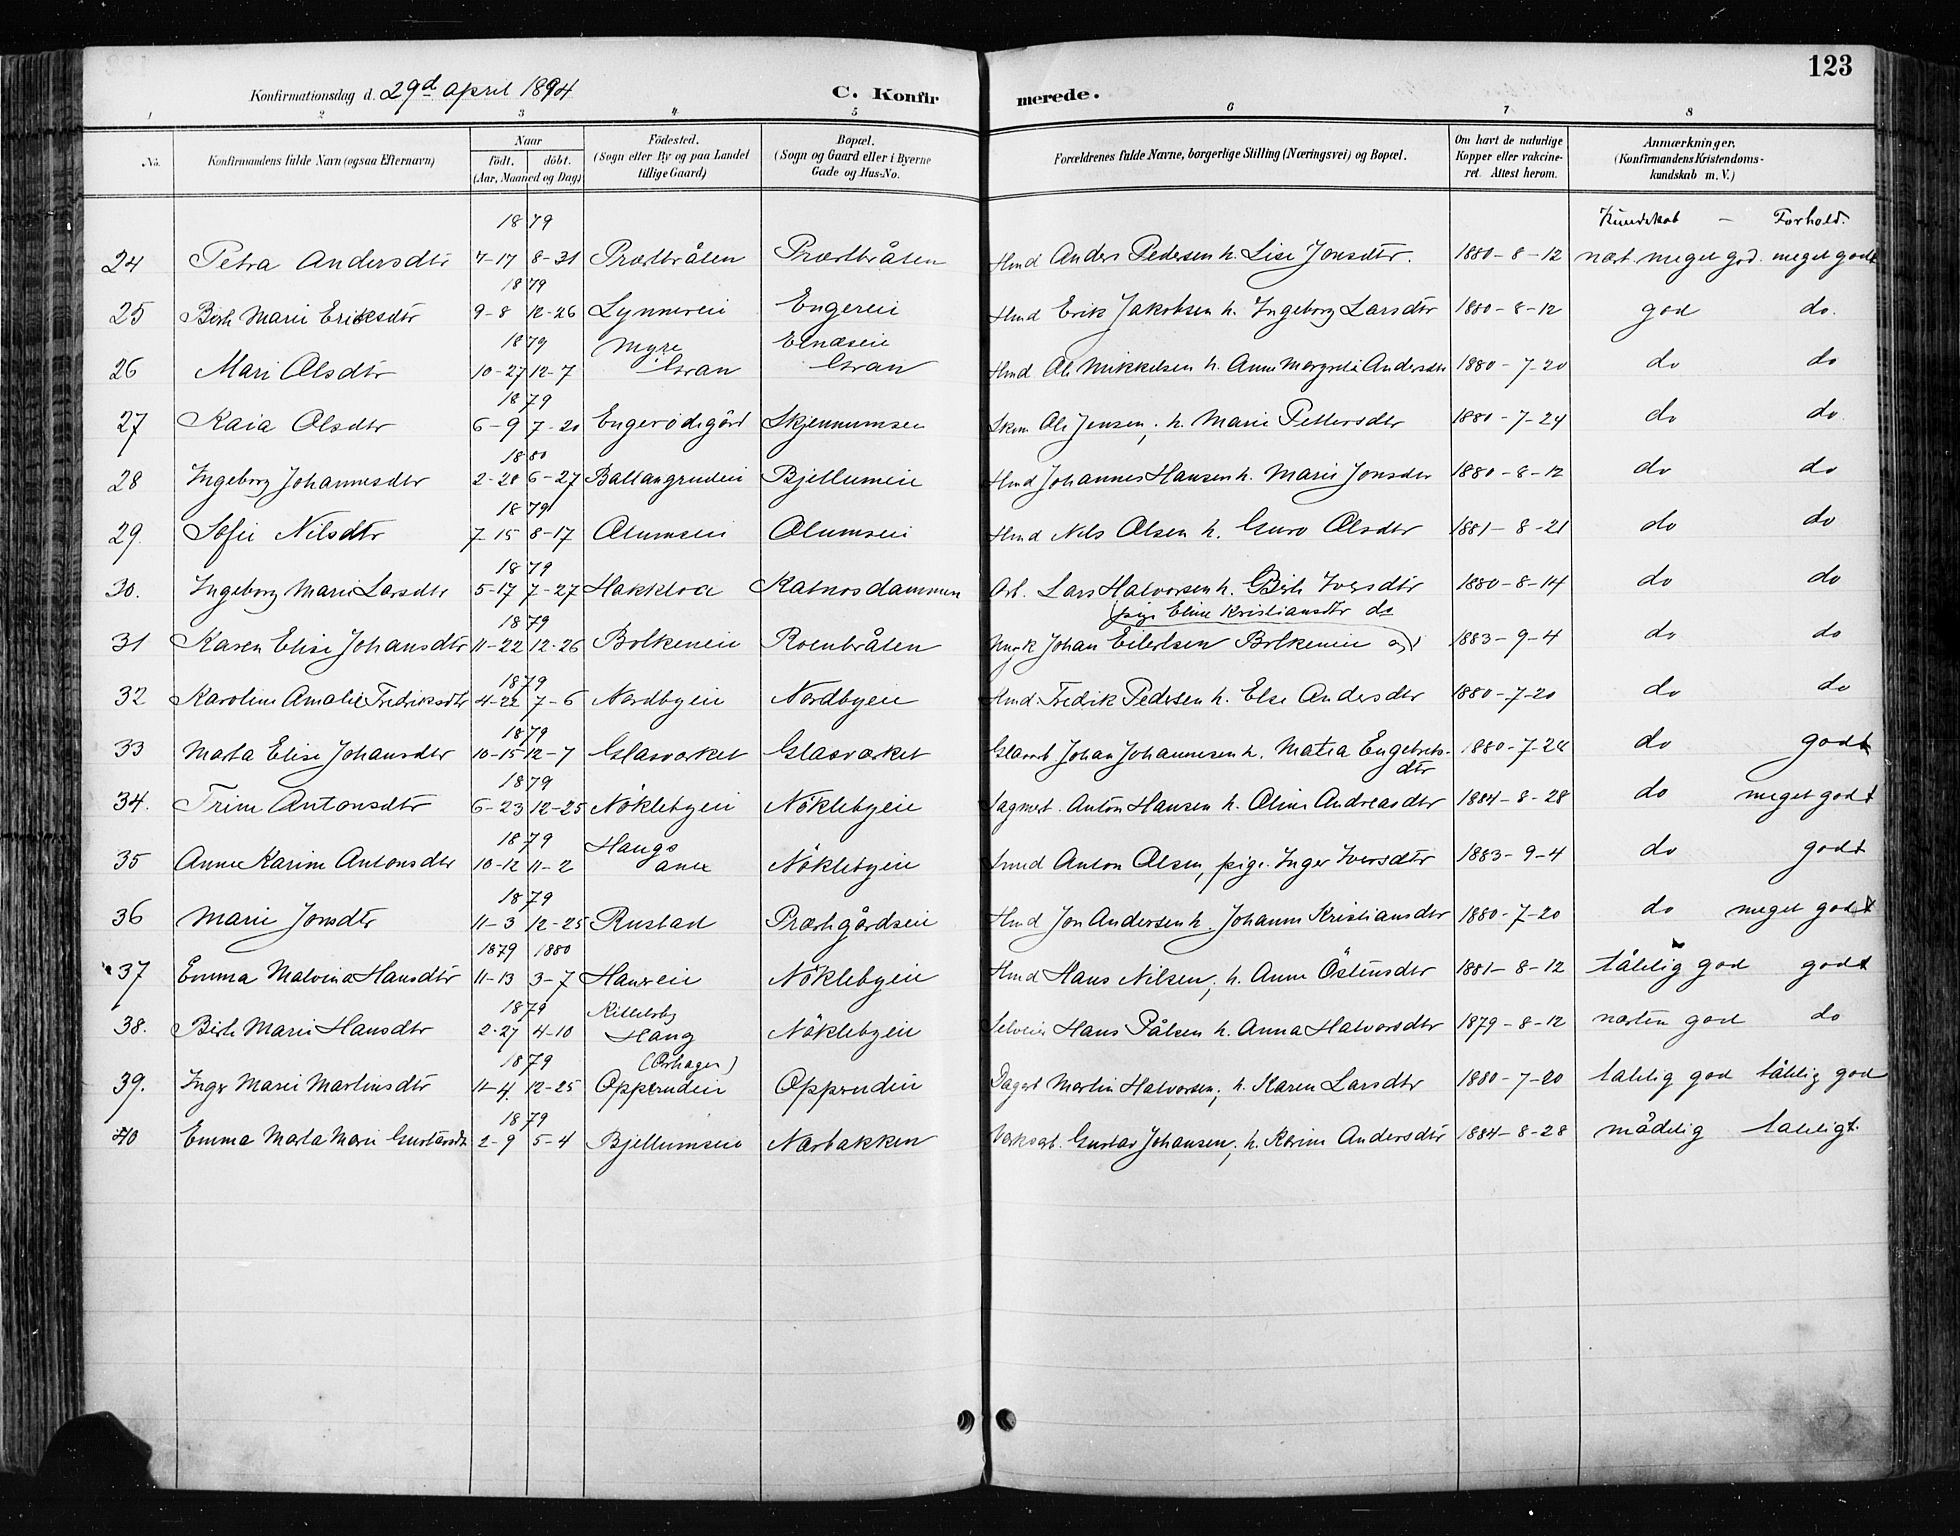 123
Konfirmationsdag d. 29d april 1894 C. Konfirmerede.
1 2 3 4 5 6 7 8
No. Konfirmandens fulde Navn (ogsaa Efternavn) Naar födt. döbt. (Aar, Maaned og Dag) Födested. (Sogn eller By og paa Landet tillige Gaard) Bopæl. (Sogn og Gaard eller i Byerne Gade og Hus-No. Forældrenes fulde Navne, borgerlige Stilling (Næringsvei) og Bopæl. Om havt de naturlige Kopper eller vakcineret. Attest herom. Anmærkninger. (Konfirmandens Kristendomskundskab m. V.)
1879 Kundskab - Forhold.
24 Petra Andersdtr 7-17 8-31 Præstbråten Præstbråten Hmd Anders Pedersen h. Lise Jonsdtr. 1880-8-12 næst meget god. meget godt
1879
25 Birth Marie Eriksdtr 9-8 12-26 Lynnereie Engereie Hmd Erik Jakobsen h. Ingeborg Larsdtr 1880-8-12 god do.
1879 Myre Elnæseie
26 Mari Olsdtr 10-27 12-7 Gran Gran Hmd Ole Mikkelsen h. Anne Margrete Andersdtr 1880-7-20 do do
1879
27 Kaia Olsdtr 6-9 7-20 Engerödegård Skjennumseie Skom Ole Jensen; h. Marie Pettersdtr 1880-7-24 do do
1880
28 Ingeborg Johannesdtr 2-28 6-27 Ballangrudeie Bjellumeie Hmd Johannes Hansen h. Marie Jonsdtr 1880-8-12 do do
1879
29. Sofie Nilsdtr 7-15 8-17 Olumseie Olumseie Hmd Nils Olsen h. Guro Olsdtr 1881-8-21 do do
1879
30. Ingeborg Marie Larsdtr 5-17 7-27 Hakkloa Katnosdammen Arb. Lars Halvorsen h. Birth Iversdtr 1880-8-14 do do
1879 pige Eline Kristiansdtr do
31 Karen Elise Johansdtr 11-22 12-26 Bolkeneie Roenbråten Ungk Johan Eilertsen Bolkeneie og 1883-9-4 do do
1879
32 Karoline Amalie Fredriksdtr 4-22 7-6 Nordbyeie Nordbyeie Hmd. Fredik Pedersen h. Else Andersdtr 1880-7-20 do do
1879
33 Marta Elise Johansdtr 10-15 12-7 Glasværket Glasværket Glasarb Johan Johannesen h. Matea Engebretsdtr 1880-7-24 do godt
1879
34. Trine Antonsdtr 6-23 12-25 Nöklebyeie Nöklebyeie Sagmest. Anton Hansen h. Oline Andreasdtr 1884-8-28 do meget godt
1879 Haugs
35 Anne Karine Antonsdtr 10-12 11-2 Nöklebyeie Smed Anton Olsen, pige. Inger Iversdtr 1883-9-4 do godt
1879
36 Marie Jonsdtr 11-3 12-25 Rustad Præstgårdseie Hmd Jon Andersen h. Johanne Kristiansdtr 1880-7-20 do meget godt
1879 1880
37 Emma Malvina Hansdtr 11-13 3-7 Hauereie Nöklebyeie Hmd Hans Nilsen; h. Anne Östensdtr 1881-8-12 tålelig god godt
1879 Killerby
38. Birth Marie Hansdtr 2-27 4-10 Haug Nöklebyeie Selveier Hans Pålsen h. Anna Halvorsdtr 1879-8-12 næsten god do
1879
39. Inger Marie Martinsdtr 11-4 12-25 Opperudeie Opperudeie Dagarb Martin Halvorsen; h. Karen Larsdtr 1880-7-20 talelig god tålelig god
1879
40 Emma Marta Marie Gustavsdtr 2-9 5-4 Bjellumseie Narbakken Værksarb. Gustav Johansen; h. Karine Andersdtr 1884-8-28 mådelig taleligt.